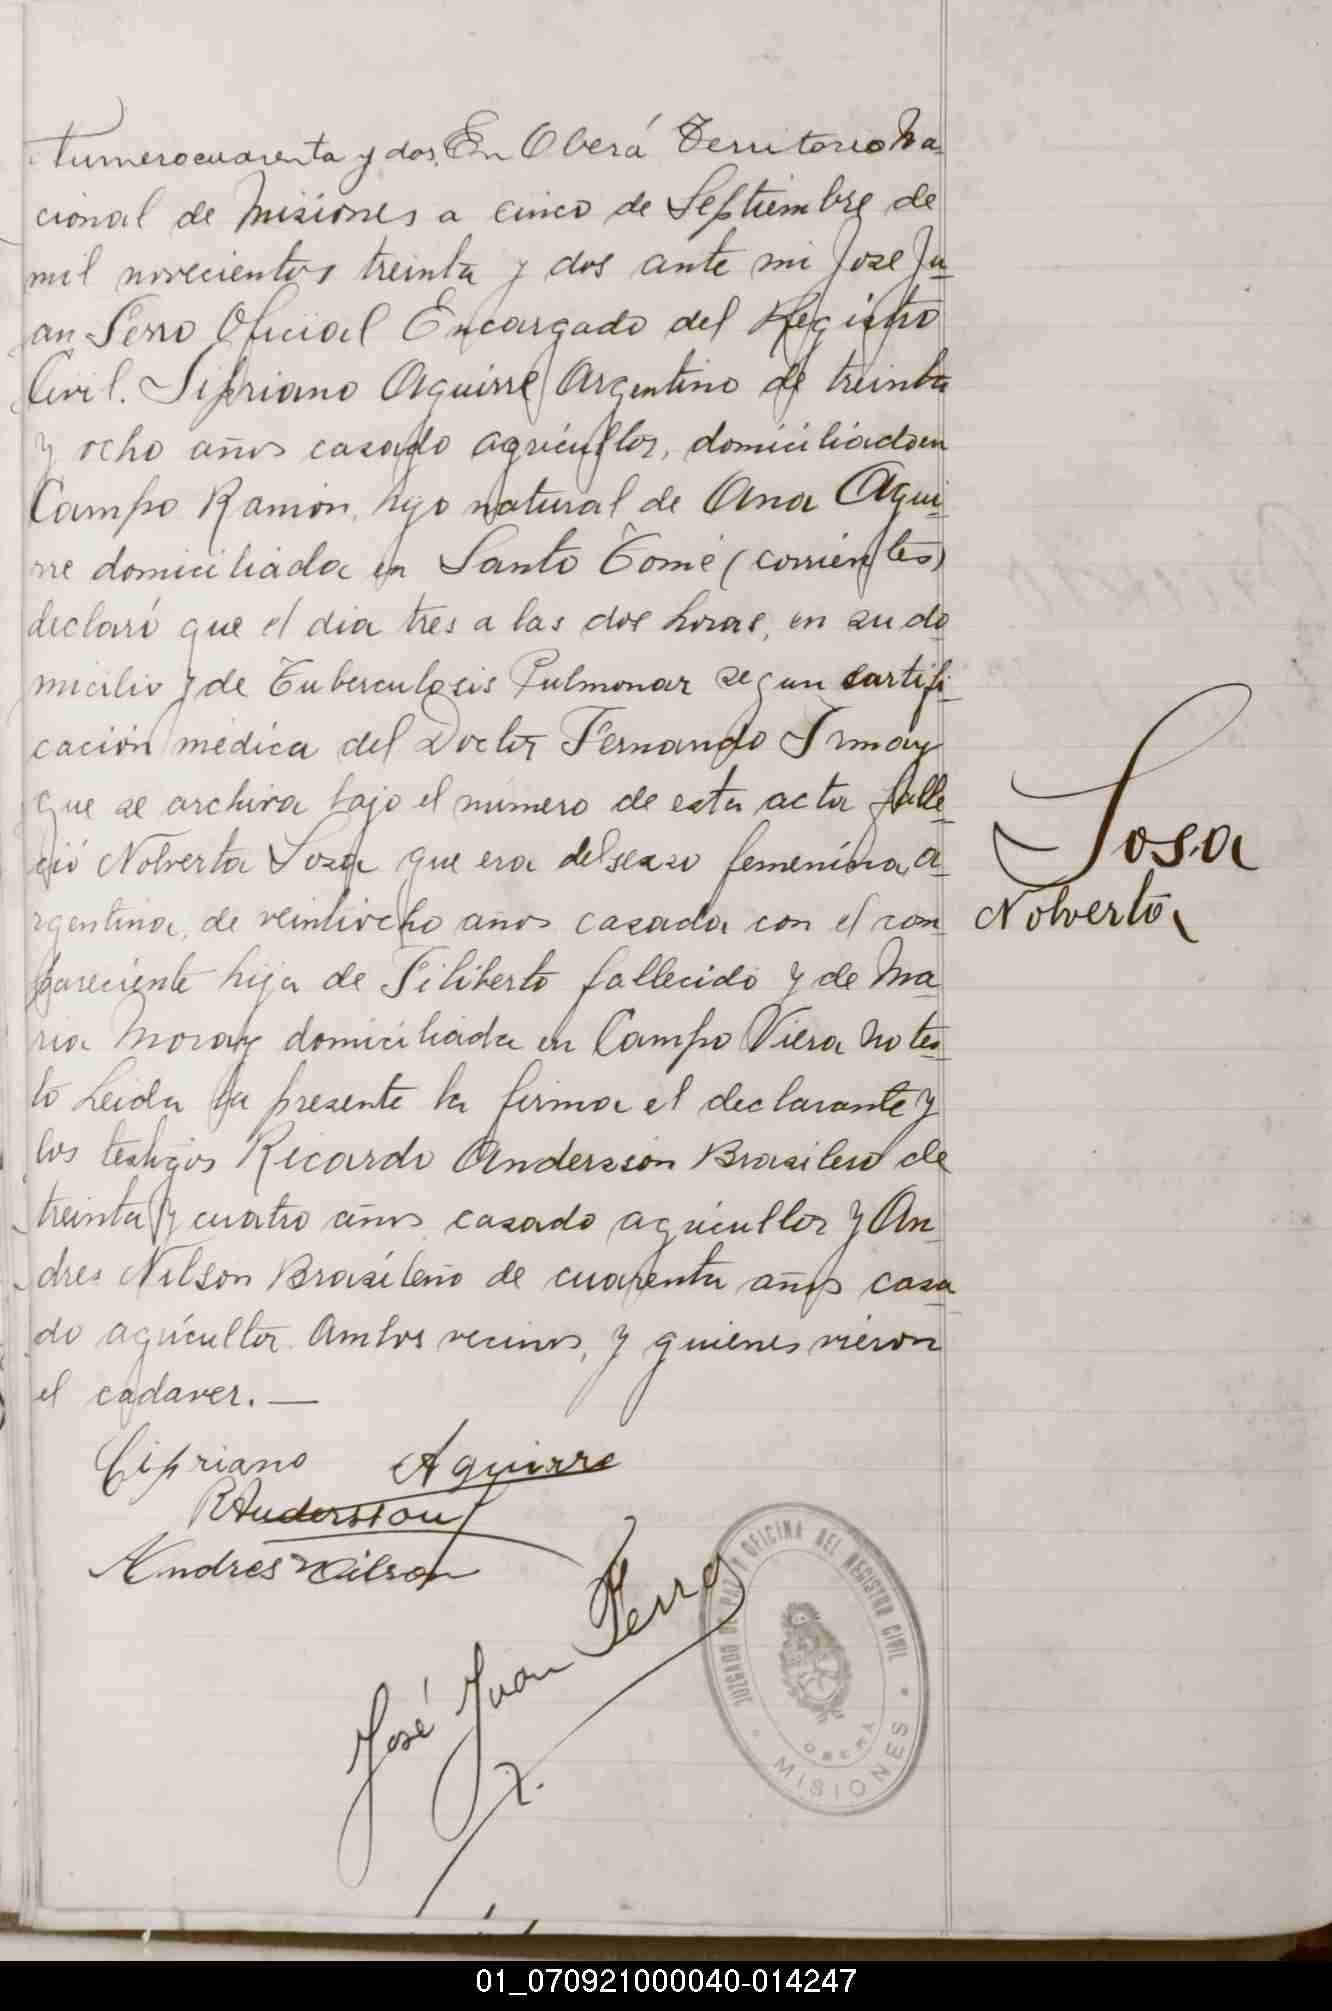 Numero cuarenta y dos. En Oberá Territorio Na-
cional de Misiones a cinco de Septiembre de
mil novecientos treinta y dos ante mi Jose Ju-
an Serro Oficial Encargado del Registro
Civil. Sipriano Aguirre Argentino de treinta
y ocho años casado agricultor, domiciliado en
Campo Ramón, hijo natural de Ana Agui-
rre domiciliada en Santo Tomé (corrientes)
declaró que el dia tres a las dos horas, en su do
micilio y de Tuberculosis Pulmonar segun sartifi-
cación médica del Doctor Fernando Irmay
que se archiva bajo el número de esta acta falle-
ció Nolverta Sosa que era del sexso femenina, a-
rgentina, de veintiocho años casada con el con-
pareciente hija de Filiberto fallecido y de Ma-
ria Moray domiciliada en Campo Viera no tes-
to Leida la presente la firma el declarante y
los testigos Ricardo Andersson Brasilero de
treinta y cuatro años casado agricultor y An-
dres Nilson Brasileño de cuarenta años casa-
do agricultor. Ambos vecinos, y quienes vieron
el cadaver. —
Sosa
Nolverta
Cipriano Aguirre
R Andersson
Andres Nilson
José Juan Serro
JUZGADO DE PAZ Y OFICINA DEL REGISTRO CIVIL
OBERA
MISIONES
01_070921000040-014247